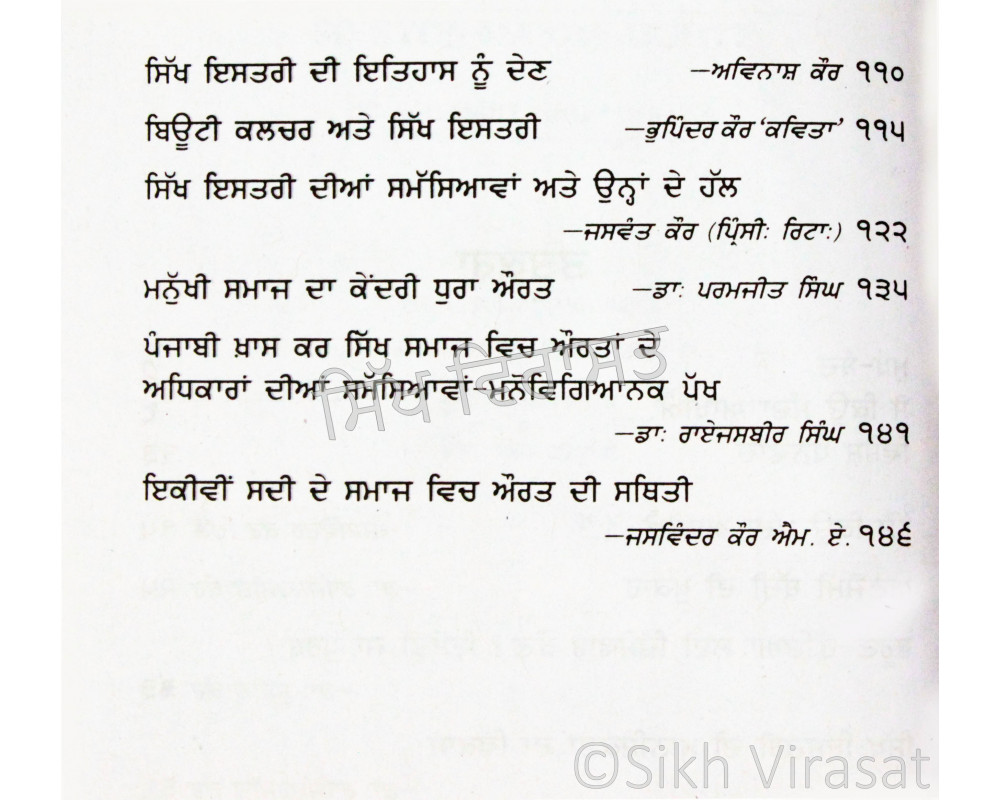 ਸਿੱਖ ਇਸਤਰੀ ਦੀ ਇਤਿਹਾਸ ਨੂੰ ਦੇਣ —ਅਵਿਨਾਸ਼ ਕੌਰ ੧੧੦
ਬਿਊਟੀ ਕਲਚਰ ਅਤੇ ਸਿੱਖ ਇਸਤਰੀ —ਭੁਪਿੰਦਰ ਕੌਰ ‘ਕਵਿਤਾ’ ੧੧੫
ਸਿੱਖ ਇਸਤਰੀ ਦੀਆਂ ਸਮੱਸਿਆਵਾਂ ਅਤੇ ਉਨ੍ਹਾਂ ਦੇ ਹੱਲ
—ਜਸਵੰਤ ਕੌਰ (ਪ੍ਰਿੰਸੀ: ਰਿਟਾ:) ੧੨੨
ਮਨੁੱਖੀ ਸਮਾਜ ਦਾ ਕੇਂਦਰੀ ਧੁਰਾ ਔਰਤ —ਡਾ: ਪਰਮਜੀਤ ਸਿੰਘ ੧੩੫
ਪੰਜਾਬੀ ਖ਼ਾਸ ਕਰ ਸਿੱਖ ਸਮਾਜ ਵਿਚ ਔਰਤਾਂ ਦੇ
ਅਧਿਕਾਰਾਂ ਦੀਆਂ ਸਮੱਸਿਆਵਾਂ-ਮਨੋਵਿਗਿਆਨਕ ਪੱਖ
—ਡਾ: ਰਾਏਜਸਬੀਰ ਸਿੰਘ ੧੪੧
ਇਕੀਵੀਂ ਸਦੀ ਦੇ ਸਮਾਜ ਵਿਚ ਔਰਤ ਦੀ ਸਥਿਤੀ
—ਜਸਵਿੰਦਰ ਕੌਰ ਐਮ. ਏ. ੧੪੬
ਸਿੱਖ ਵਿਰਾਸਤ
©Sikh Virasat